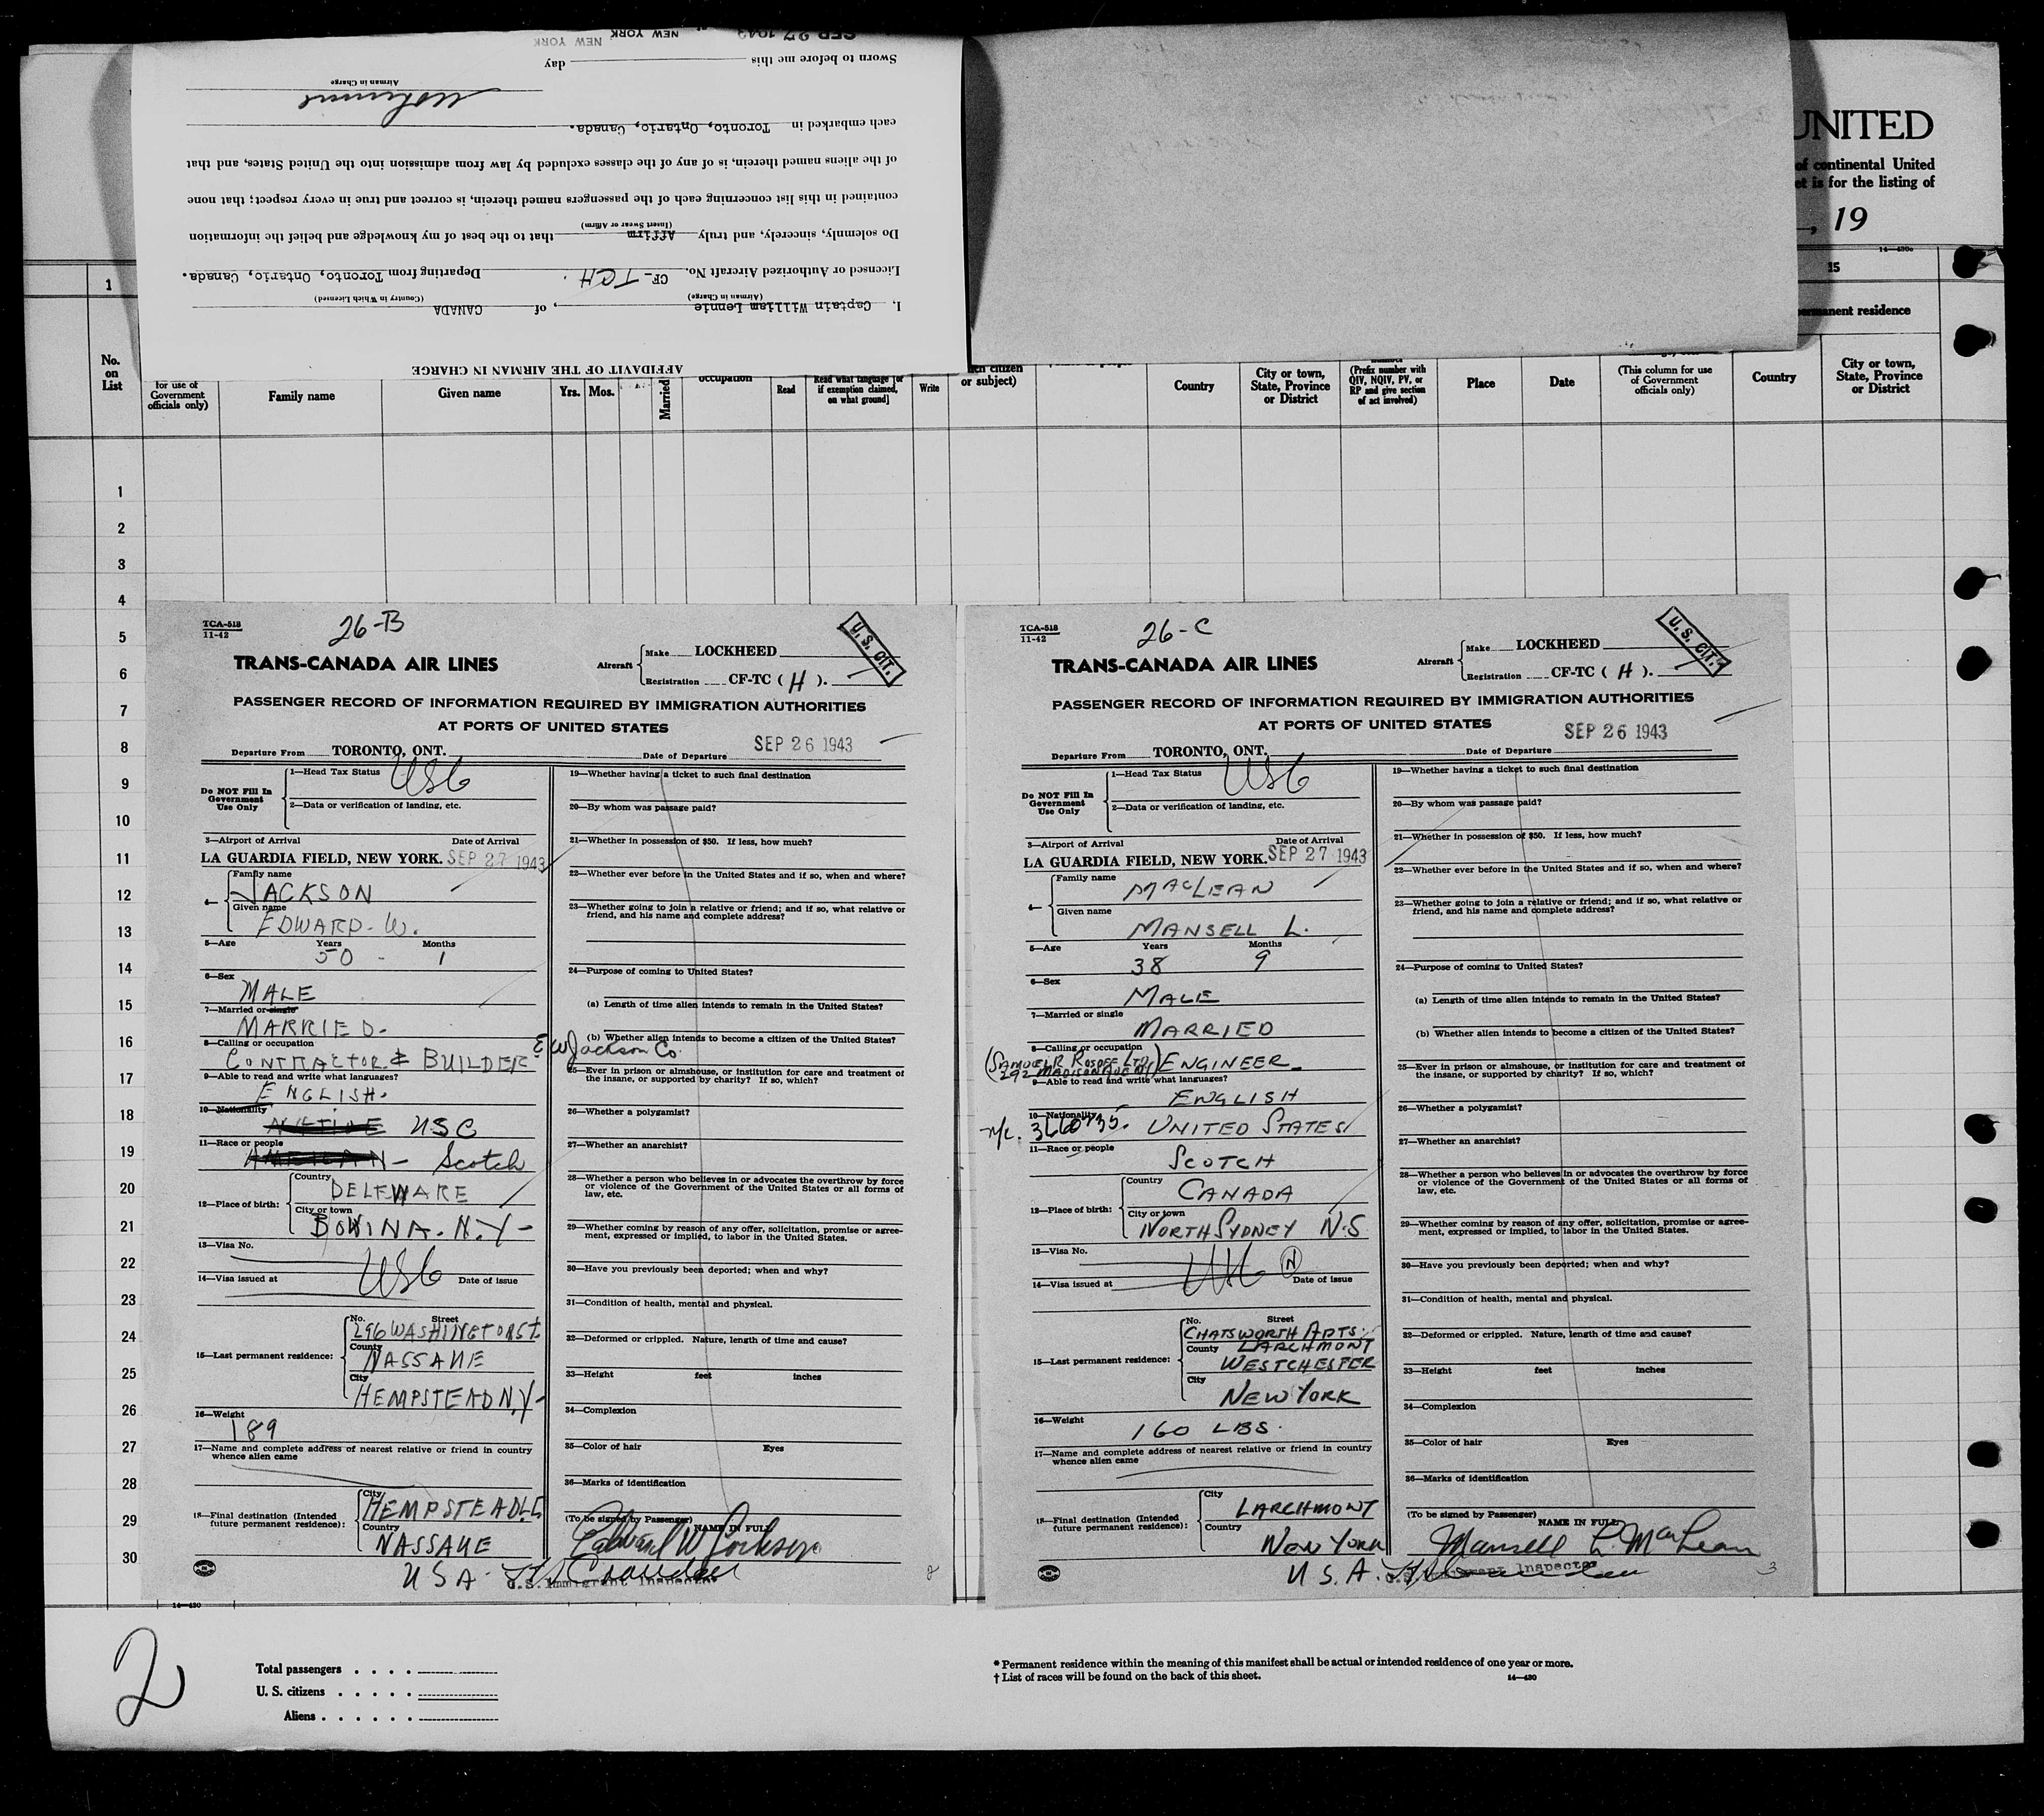 SEP 27 1943 NEW YORK NEW YORK
Sworn to before me this day
Airman in Charge
each embarked in Toronto, Ontario, Canada.
of the aliens named therein, is of any of the classes excluded by law from admission into the United States, and that
contained in this list concerning each of the passengers named therein, is correct and true in every respect; that none
(Insert Swear or Affirm)
Do solemnly, sincerely, and truly Affirm that to the best of my knowledge and belief the information
Licensed or Authorized Aircraft No. CF-TCH. Departing from Toronto, Ontario, Canada.
(Airman in Charge) (Country in Which Licensed)
I, Captain William Lennie, of CANADA
AFFIDAVIT OF THE AIRMAN IN CHARGE
UNITED
of continental United
et is for the listing of
, 19
14—430a
1 15
permanent residence
No. on List
for use of Government officials only)
Family name
Given name
Yrs. Mos.
Married
occupation
Read
Read what language [or if exemption claimed, on what ground]
Write
citizen or subject)
Country
City or town, State, Province or District
(Prefix number with QIV, NQIV, PV, or RP and give section of act involved)
Place
Date
(This column for use of Government officials only)
Country
City or town, State, Province or District
1
2
3
4
5
6
7
8
9
10
11
12
13
14
15
16
17
18
19
20
21
22
23
24
25
26
27
28
29
30
TCA-518
11-42
26-B
U. S. CIT.
TRANS-CANADA AIR LINES
Aircraft Make LOCKHEED
Registration CF-TC ( H ).
PASSENGER RECORD OF INFORMATION REQUIRED BY IMMIGRATION AUTHORITIES
AT PORTS OF UNITED STATES
Departure From TORONTO, ONT. Date of Departure SEP 26 1943
Do NOT Fill In Government Use Only
1—Head Tax Status USC
2—Data or verification of landing, etc.
3—Airport of Arrival Date of Arrival
LA GUARDIA FIELD, NEW YORK. SEP 27 1943
4— Family name
JACKSON
Given name
EDWARD. W.
5—Age Years Months
50 - 1
6—Sex
MALE
7—Married or single
MARRIED.
8—Calling or occupation
CONTRACTOR & BUILDER E W Jackson Co.
9—Able to read and write what languages?
ENGLISH.
10—Nationality
NATIVE USC
11—Race or people
AMERICAN - Scotch
12—Place of birth: Country
DELEWARE
City or town
BOVINA. N.Y-
13—Visa No.
14—Visa issued at USC Date of issue
15—Last permanent residence: No. Street
296 WASHINGTON ST.
County
NASSAUE
City
HEMPSTEAD N.Y-
16—Weight
189
17—Name and complete address of nearest relative or friend in country whence alien came
18—Final destination (Intended future permanent residence): City
HEMPSTEAD L.I.
Country
NASSAUE
USA.
19—Whether having a ticket to such final destination
20—By whom was passage paid?
21—Whether in possession of $50. If less, how much?
22—Whether ever before in the United States and if so, when and where?
23—Whether going to join a relative or friend; and if so, what relative or friend, and his name and complete address?
24—Purpose of coming to United States?
(a) Length of time alien intends to remain in the United States?
(b) Whether alien intends to become a citizen of the United States?
25—Ever in prison or almshouse, or institution for care and treatment of the insane, or supported by charity? If so, which?
26—Whether a polygamist?
27—Whether an anarchist?
28—Whether a person who believes in or advocates the overthrow by force or violence of the Government of the United States or all forms of law, etc.
29—Whether coming by reason of any offer, solicitation, promise or agreement, expressed or implied, to labor in the United States.
30—Have you previously been deported; when and why?
31—Condition of health, mental and physical.
32—Deformed or crippled. Nature, length of time and cause?
33—Height feet inches
34—Complexion
35—Color of hair Eyes
36—Marks of identification
(To be signed by Passenger) NAME IN FULL
Edward W Jackson
U.S. Immigrant Inspector
2
TCA-518
11-42
26-C
U. S. CIT.
TRANS-CANADA AIR LINES
Aircraft Make LOCKHEED
Registration CF-TC ( H ).
PASSENGER RECORD OF INFORMATION REQUIRED BY IMMIGRATION AUTHORITIES
AT PORTS OF UNITED STATES
Departure From TORONTO, ONT. Date of Departure SEP 26 1943
Do NOT Fill In Government Use Only
1—Head Tax Status USC
2—Data or verification of landing, etc.
3—Airport of Arrival Date of Arrival
LA GUARDIA FIELD, NEW YORK. SEP 27 1943
4— Family name
MACLEAN
Given name
MANSELL L.
5—Age Years Months
38 9
6—Sex
MALE
7—Married or single
MARRIED
8—Calling or occupation
(SAMUEL R ROSOFF LTD. 292 MADISON AVE NY) ENGINEER
9—Able to read and write what languages?
ENGLISH
10—Nationality
N/C. 3660735. UNITED STATES
11—Race or people
SCOTCH
12—Place of birth: Country
CANADA
City or town
NORTH SYDNEY N.S
13—Visa No.
14—Visa issued at USC N Date of issue
15—Last permanent residence: No. Street
CHATSWORTH APTS.
County LARCHMONT
WESTCHESTER
City
NEW YORK
16—Weight
160 LBS.
17—Name and complete address of nearest relative or friend in country whence alien came
18—Final destination (Intended future permanent residence): City
LARCHMONT
Country
NEW YORK
U.S.A.
19—Whether having a ticket to such final destination
20—By whom was passage paid?
21—Whether in possession of $50. If less, how much?
22—Whether ever before in the United States and if so, when and where?
23—Whether going to join a relative or friend; and if so, what relative or friend, and his name and complete address?
24—Purpose of coming to United States?
(a) Length of time alien intends to remain in the United States?
(b) Whether alien intends to become a citizen of the United States?
25—Ever in prison or almshouse, or institution for care and treatment of the insane, or supported by charity? If so, which?
26—Whether a polygamist?
27—Whether an anarchist?
28—Whether a person who believes in or advocates the overthrow by force or violence of the Government of the United States or all forms of law, etc.
29—Whether coming by reason of any offer, solicitation, promise or agreement, expressed or implied, to labor in the United States.
30—Have you previously been deported; when and why?
31—Condition of health, mental and physical.
32—Deformed or crippled. Nature, length of time and cause?
33—Height feet inches
34—Complexion
35—Color of hair Eyes
36—Marks of identification
(To be signed by Passenger) NAME IN FULL
Mansell L. MacLean
U.S. Immigrant Inspector
3
14—430
2
Total passengers
U. S. citizens
Aliens
* Permanent residence within the meaning of this manifest shall be actual or intended residence of one year or more.
† List of races will be found on the back of this sheet.
14—430